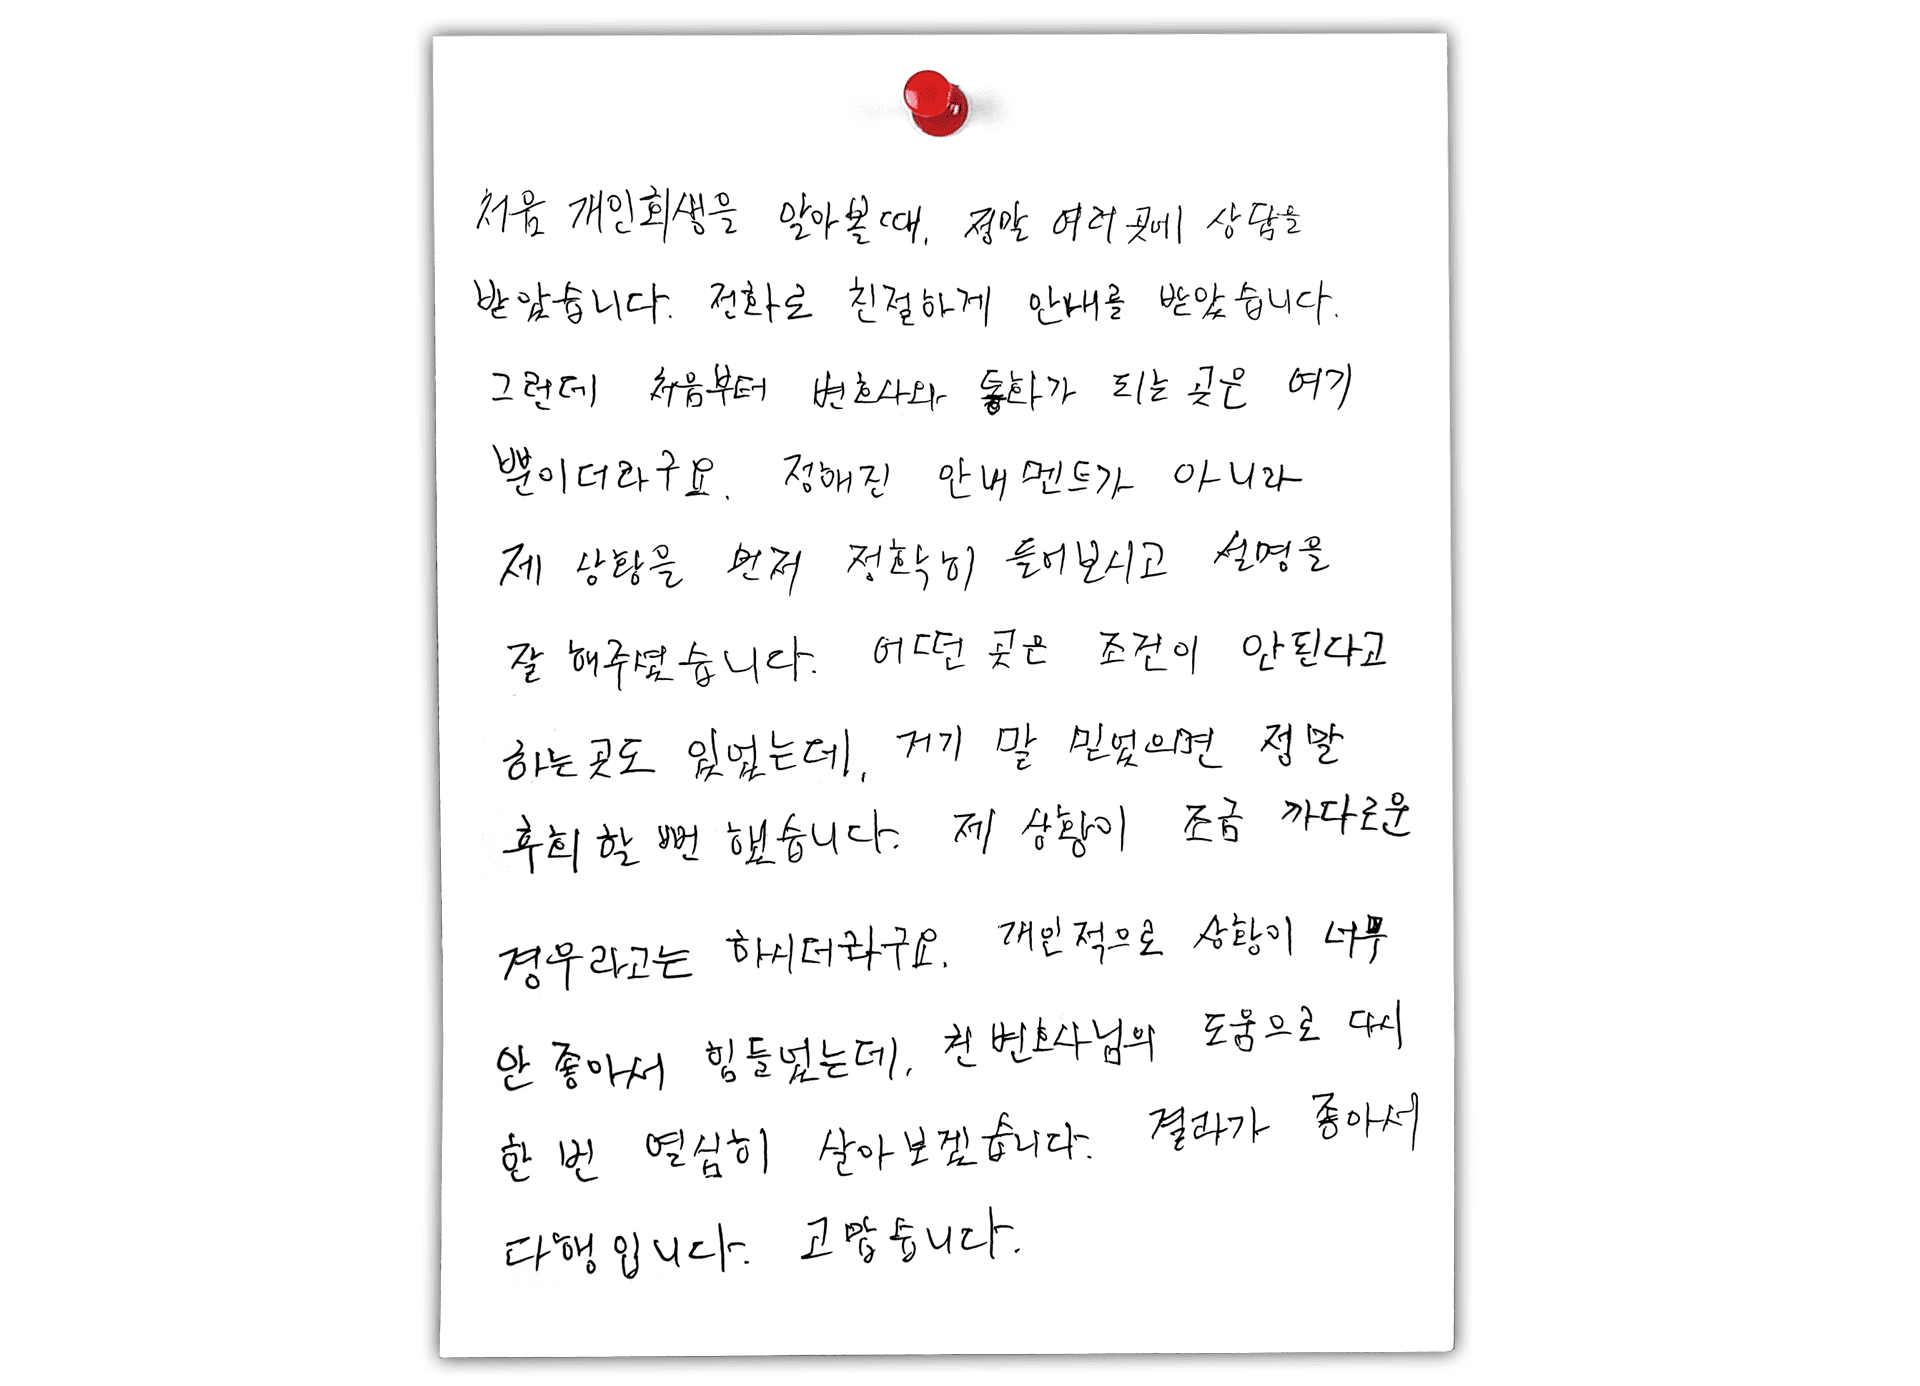 처음 개인회생을 알아볼때, 정말 여러곳에 상담을
받았습니다. 전화로 친절하게 안내를 받았습니다.
그런데 처음부터 변호사와 통화가 되는 곳은 여기
뿐이더라구요. 정해진 안내 멘트가 아니라
제 상황을 먼저 정확히 들어보시고 설명을
잘 해주셨습니다. 어떤 곳은 조건이 안된다고
하는곳도 있었는데, 거기 말 믿었으면 정말
후회할 뻔 했습니다. 제 상황이 조금 까다로운
경우라고는 하시더라구요. 개인적으로 상황이 너무
안 좋아서 힘들었는데, 천 변호사님의 도움으로 다시
한 번 열심히 살아보겠습니다. 결과가 좋아서
다행입니다. 고맙습니다.